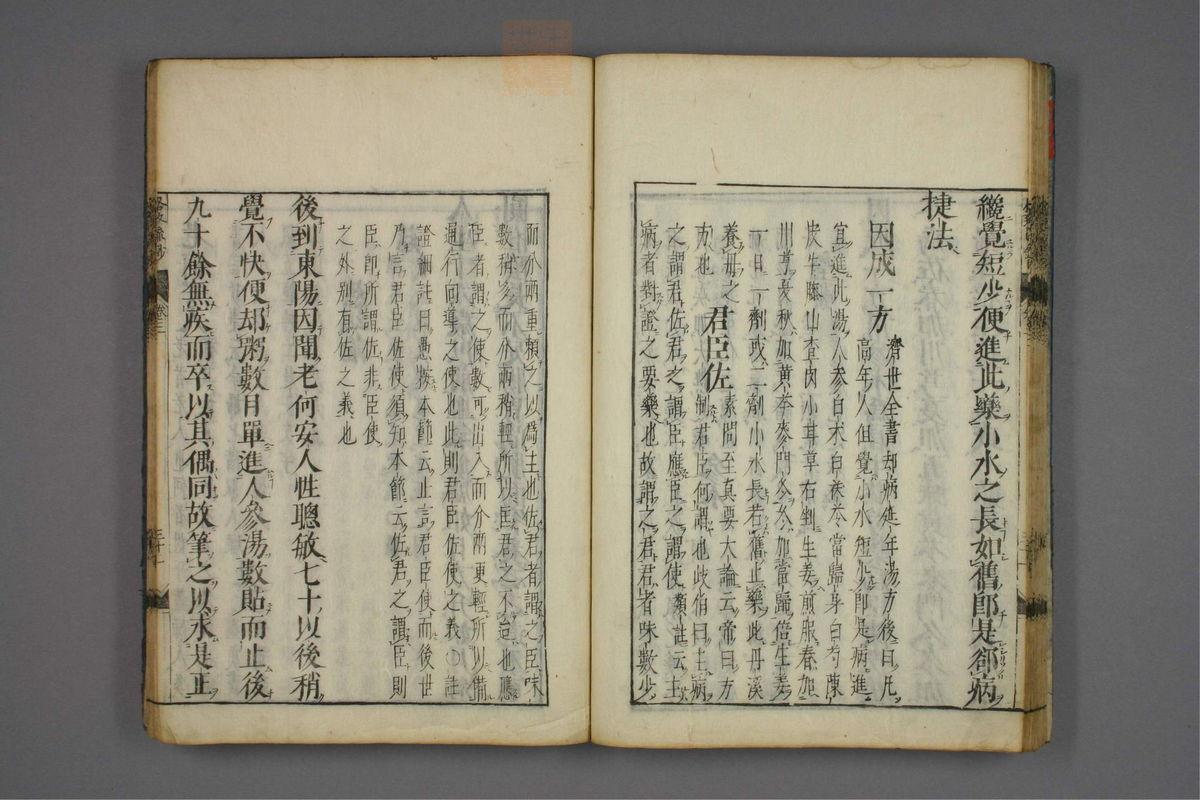 纔覺短少便進此藥小水之長如舊即是却病
捷法
因成一方 濟世全書却病延年湯方後曰凡
高年人但覺小水短少即是病進
宜進此湯人參白朮白茯苓當歸身白芍陳
皮牛膝山查肉小耳草右剉生姜煎服春加
川芎長秋加黃芩麥門冬冬加當歸倍生姜
一日一劑或二劑小水長若舊止藥此丹溪
養母之
君臣佐 素問至真要大論云帝曰方
方也 制君臣何謂也岐伯曰主病
之謂君佐君之謂臣應臣之謂使 類註云主
病者對證之要藥也故謂之君君者味數少
而分兩重賴之以爲主也佐君者謂之臣味
數稍多而分兩稍輕所以匡君之不迨也應
臣者謂之使數可出入而分兩更輕所以備
通行向導之使也此則君臣佐使之義〇註
證細註曰愚按本節云止言君臣使而後世
乃言君臣佐使須知本節云佐君之謂臣則
臣即所謂佐非臣使
之外別有佐之義也
後到東陽因聞老何安人性聰敏七十以後稍
覺不快便却粥數日單進人參湯數貼而止後
九十餘無疾而卒以其偶同故筆之以求是正